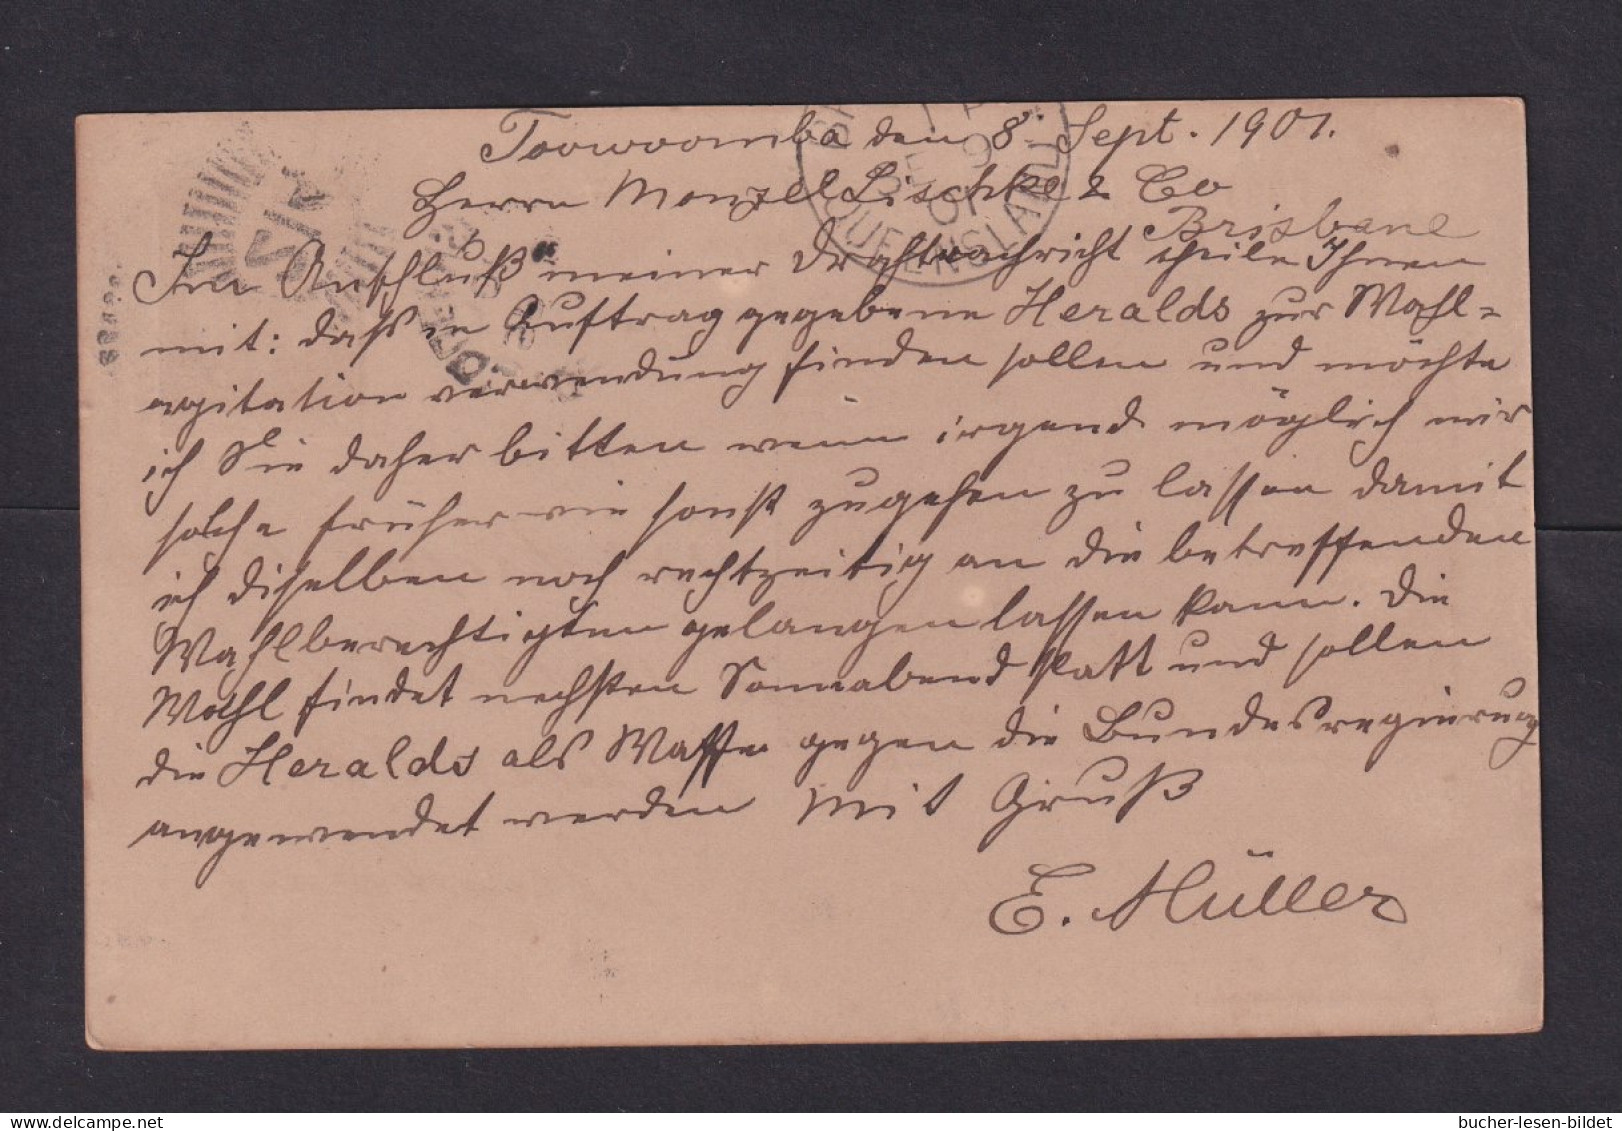 Toowoomba den 8. Sept. 1901.
Herrn Monzell Lischke & Co
Brisbane
Im Anschluß meiner Drahtnachricht theile Ihnen
mit: daß in Auftrag gegebene Heralds zur Wahl=
agitation verwendung finden sollen und möchte
ich Sie daher bitten wenn irgend möglich mir
solche früher wie sonst zugehen zu lassen damit
ich diselben noch rechtzeitig an die betreffenden
Wahlberechtigten gelangen lassen kann. Die
Wahl findet nechsten Sonnabend statt und sollen
die Heralds als Waffe gegen die Bundesregierug
angewendet werden Mit Gruß
E. Müller
QUEENSLAND
bucher-lesen-bildet